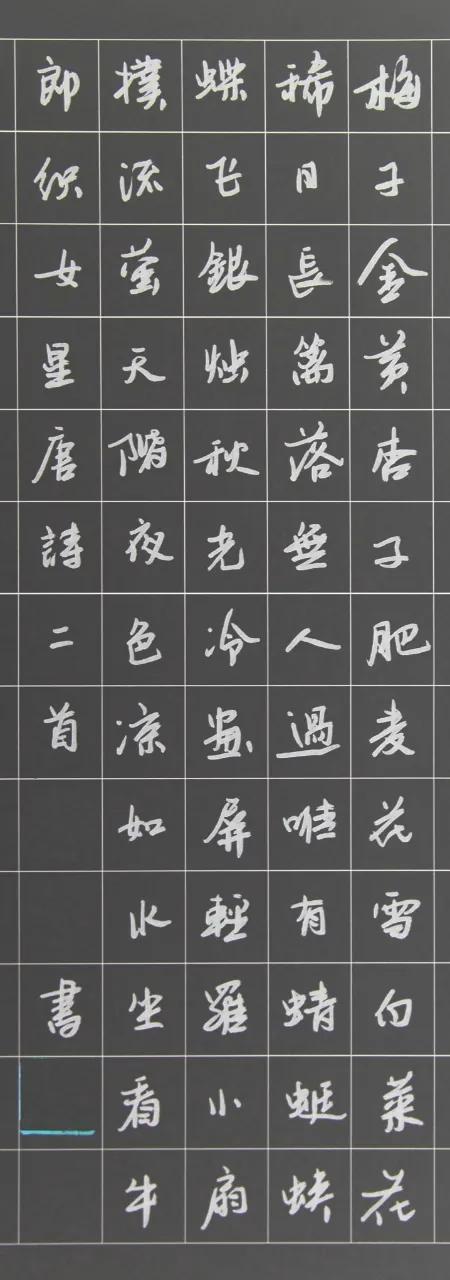 梅子金黄杏子肥麦花雪白菜花
稀日長篱落無人過唯有蜻蜓蛱
蝶飞銀烛秋光冷畫屏輕羅小扇
撲流萤天階夜色凉如水坐看牛
郎织女星唐詩二首 書